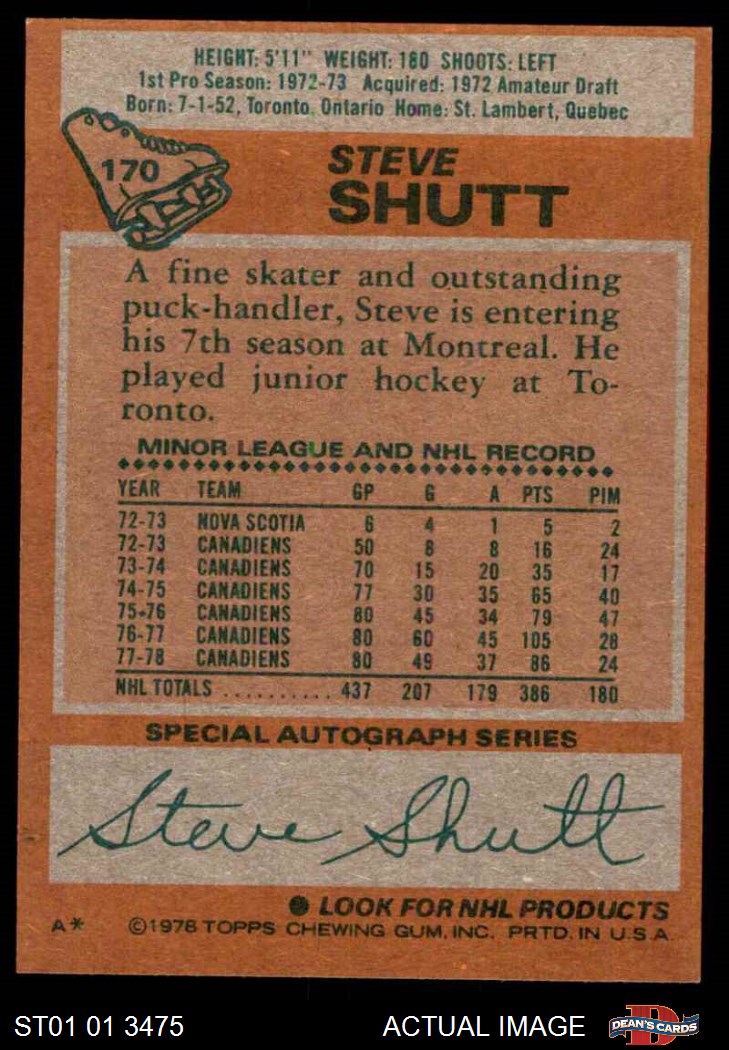 HEIGHT: 5'11" WEIGHT: 180 SHOOTS: LEFT
1st Pro Season: 1972-73 Acquired: 1972 Amateur Draft
Born: 7-1-52, Toronto, Ontario Home: St. Lambert, Quebec
170
STEVE
SHUTT
A fine skater and outstanding
puck-handler, Steve is entering
his 7th season at Montreal. He
played junior hockey at To-
ronto.
MINOR LEAGUE AND NHL RECORD
YEAR TEAM GP G A PTS PIM
72-73 NOVA SCOTIA 6 4 1 5 2
72-73 CANADIENS 50 8 8 16 24
73-74 CANADIENS 70 15 20 35 17
74-75 CANADIENS 77 30 35 65 40
75-76 CANADIENS 80 45 34 79 47
76-77 CANADIENS 80 60 45 105 28
77-78 CANADIENS 80 49 37 86 24
NHL TOTALS .......... 437 207 179 386 180
SPECIAL AUTOGRAPH SERIES
Steve Shutt
● LOOK FOR NHL PRODUCTS
A* ©1978 TOPPS CHEWING GUM, INC. PRTD. IN U.S.A.
ST01 01 3475 ACTUAL IMAGE DEAN'S CARDS